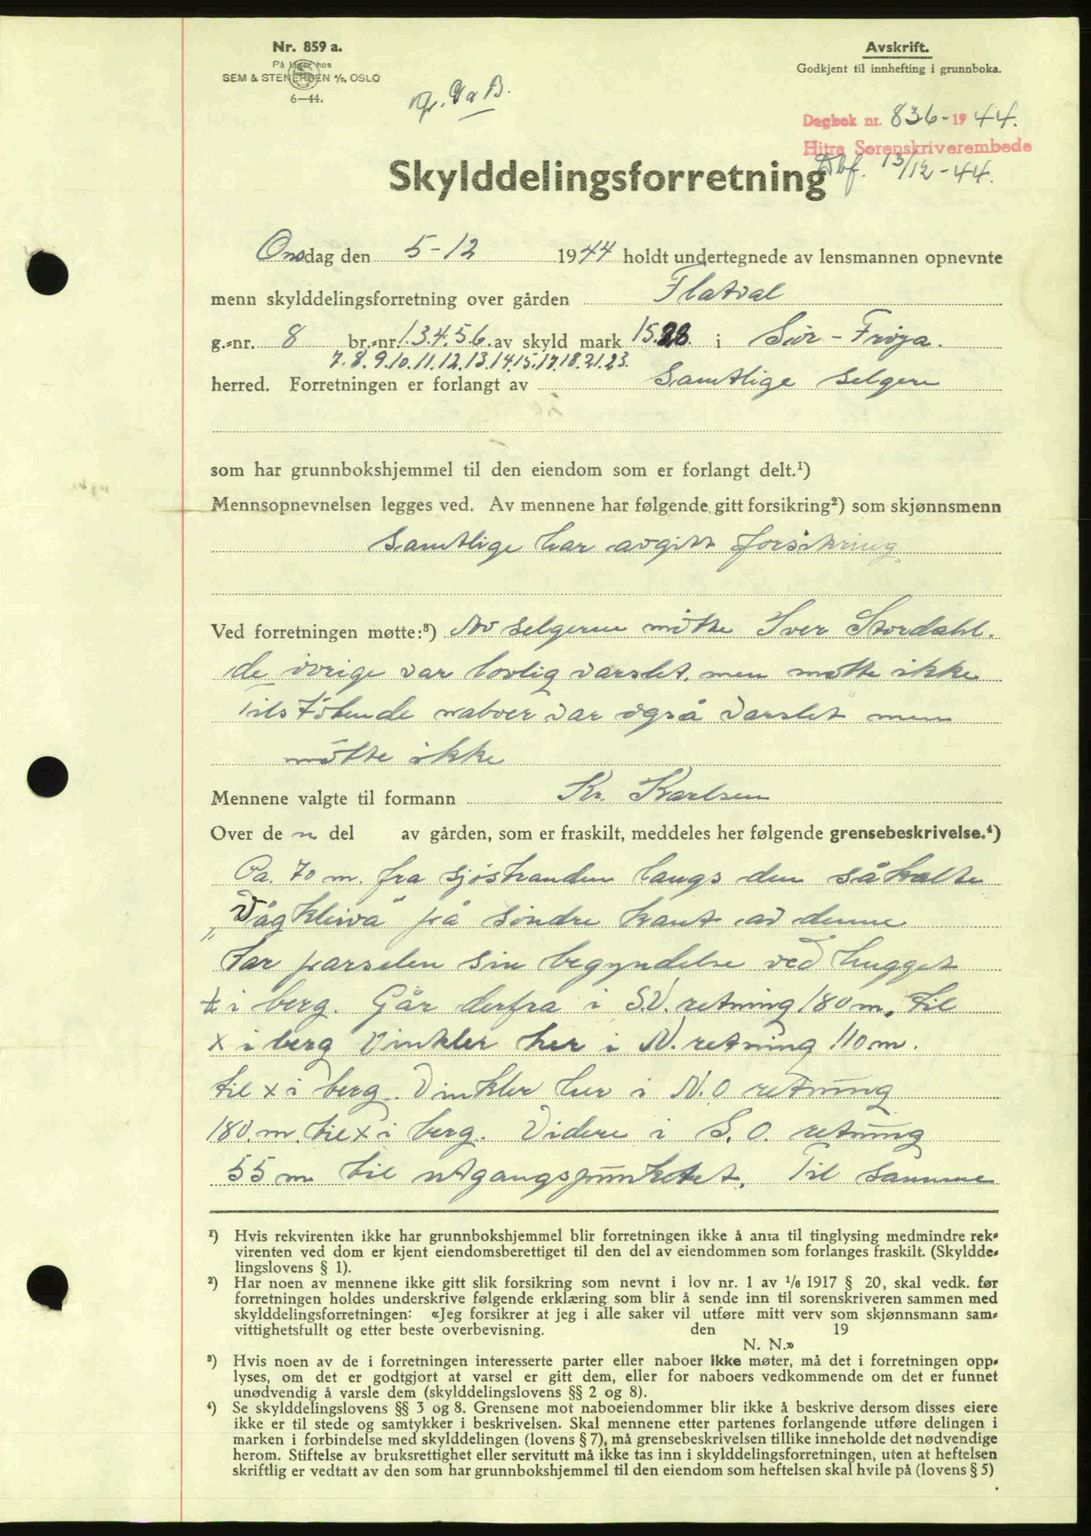 Nr. 859 a.
På lager hos
SEM & STENERSEN A/S, OSLO
6—44.
Avskrift.
Godkjent til innhefting i grunnboka.
Dagbok nr. 836 - 1944.
Hitra Sorenskriverembede
Dbf. 13/12-44.
Skylddelingsforretning
Onsdag den 5-12 1944 holdt undertegnede av lensmannen opnevnte
menn skylddelingsforretning over gården Flatval
g.-nr. 8 br.-nr 1.3.4.5.6. av skyld mark 15.28 i Sør-Frøya.
7.8.9.10.11.12.13.14.15.17.18.21.23.
herred. Forretningen er forlangt av Samtlige selgere
som har grunnbokshjemmel til den eiendom som er forlangt delt.¹)
Mennsopnevnelsen legges ved. Av mennene har følgende gitt forsikring²) som skjønnsmenn
Samtlige har avgitt forsikring
Ved forretningen møtte:³) Av selgerne møtte Iver Stordahl.
de øvrige var lovlig varslet, men møtte ikke
Tilstøtende naboer var også varslet men
møtte ikke
Mennene valgte til formann Kr. Karlsen
Over de n del av gården, som er fraskilt, meddeles her følgende grensebeskrivelse.⁴)
Ca. 70 m. fra sjøstranden langs den såkalte
"Vågkleiva" på søndre kant av denne
tar parselen sin begyndelse ved hugget
x i berg. Går derfra i S.V. retning 180 m, til
x i berg Vinkler her i N. retning 110 m.
til x i berg. Vinkler her i N.O retning
180. m til x i berg. Videre i S.O. retning
55 m til utgangspunktet. Til samme
¹) Hvis rekvirenten ikke har grunnbokshjemmel blir forretningen ikke å anta til tinglysing medmindre rek-
virenten ved dom er kjent eiendomsberettiget til den del av eiendommen som forlanges fraskilt. (Skyldde-
lingslovens § 1).
²) Har noen av mennene ikke gitt slik forsikring som nevnt i lov nr. 1 av 1/6 1917 § 20, skal vedk. før
forretningen holdes underskrive følgende erklæring som blir å sende inn til sorenskriveren sammen med
skylddelingsforretningen: «Jeg forsikrer at jeg i alle saker vil utføre mitt verv som skjønnsmann sam-
vittighetsfullt og etter beste overbevisning. den 19
N. N.»
³) Hvis noen av de i forretningen interesserte parter eller naboer ikke møter, må det i forretningen opp-
lyses, om det er godtgjort at varsel er gitt dem, eller for naboers vedkommende om det er funnet
unødvendig å varsle dem (skylddelingslovens §§ 2 og 8).
⁴) Se skylddelingslovens §§ 3 og 8. Grensene mot naboeiendommer blir ikke å beskrive dersom disses eiere
ikke er til stede og samtykker i beskrivelsen. Skal mennene etter partenes forlangende utføre delingen i
marken i forbindelse med skylddelingen (lovens § 7), må grensebeskrivelsen tillike inneholde det nødvendige
herom. Stiftelse av bruksrettighet eller servitutt må ikke tas inn i skylddelingsforretningen, uten at heftelsen
skriftlig er vedtatt av den som har grunnbokshjemmel til den eiendom som heftelsen skal hvile på (lovens § 5)